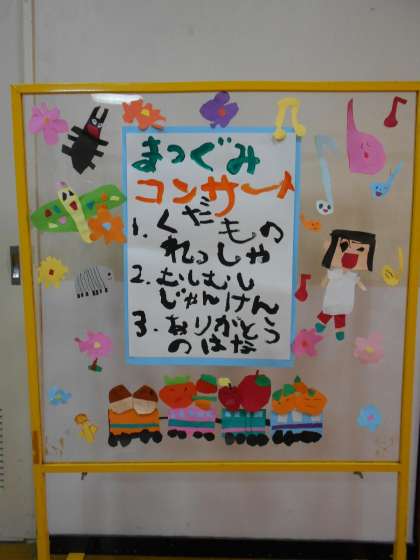 まつぐみ
コンサート
1. くだもの
れっしゃ
2. むしむし
じゃんけん
3. ありがとう
のはな